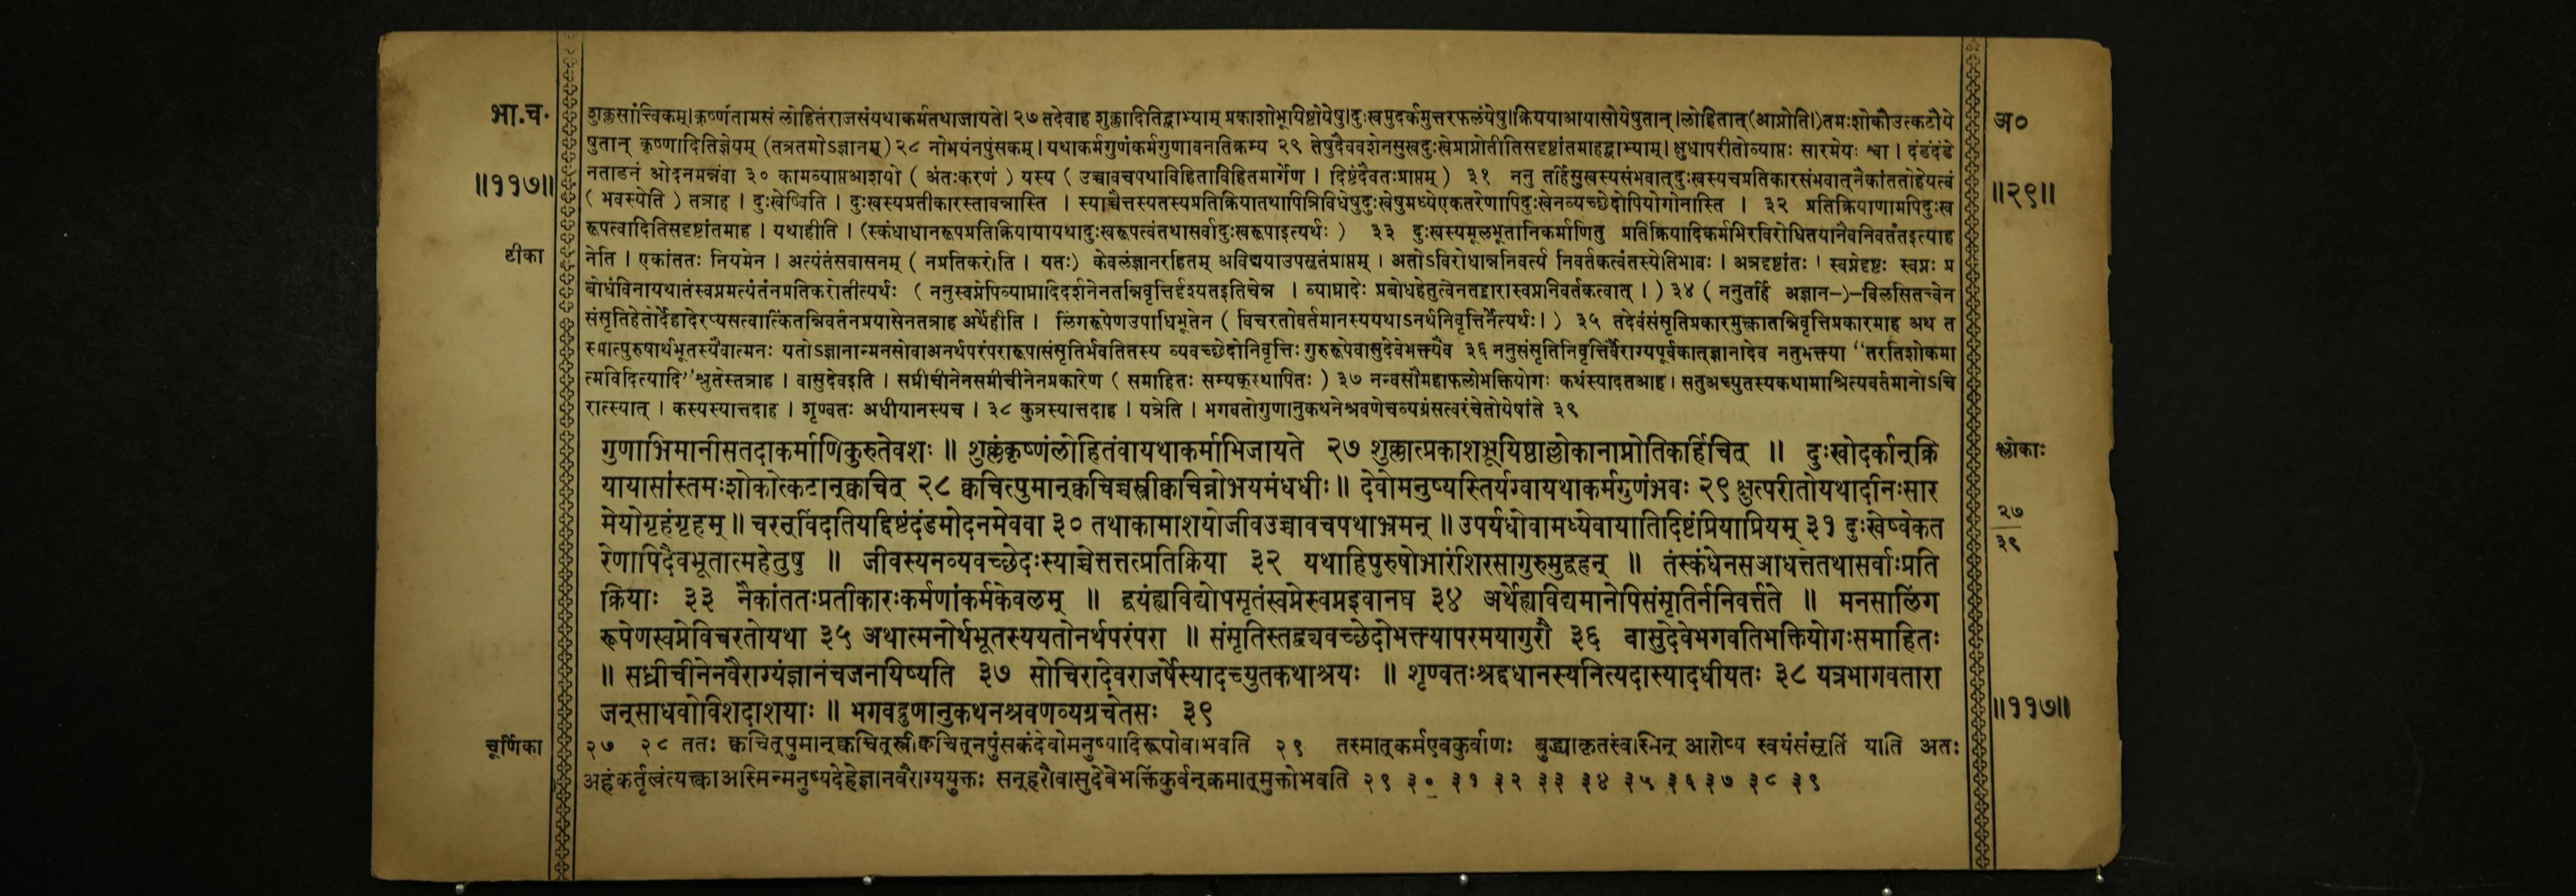 भा.च.
॥११७॥
टीका
चूर्णिका
शुक्लसात्त्विकम्।कृष्णंतामसं लोहितंराजसंयथाकर्मतथाजायते।२७तदेवाह शुक्लादितिद्वाभ्याम् प्रकाशोभूयिष्ठोयेषु।दुःखमुदर्कमुत्तरफलंयेषु।क्रिययाआयासोयेषुतान्।लोहितात्(आप्नोति।)तमःशोकौउत्कटौये
षुतान् कृष्णादितिज्ञेयम् (तत्रतमोऽज्ञानम्)२८ नोभयंनपुंसकम्।यथाकर्मगुणंकर्मगुणावनतिक्रम्य २९ तेषुदैववशेनसुखदुःखेप्राप्नोतीतिसदृष्टांतमाहद्वाभ्याम्।क्षुधापरीतोव्याप्तः सारमेयः श्वा । दंडंदंडे
नताडनं ओदनमन्नंवा ३० कामव्याप्तआशयो ( अंतःकरणं ) यस्य ( उच्चावचपथाविहिताविहितमार्गेण । दिष्टंदैवतःप्राप्तम् ) ३१ ननु तर्हिसुखस्यसंभवात्दुःखस्यचप्रतिकारसंभवात्नैकांततोहेयत्वं
( भवस्येति ) तत्राह । दुःखेष्विति । दुःखस्यप्रतीकारस्तावन्नास्ति । स्याच्चैत्तस्यतस्यप्रतिक्रियातथापित्रिविधेषुदुःखेषुमध्येएकतरेणापिदुःखेनव्यच्छेदोपियोगोनास्ति । ३२ प्रतिक्रियाणामपिदुःख
रूपत्वादितिसदृष्टांतमाह । यथाहीति । (स्कंधाधानरूपप्रतिक्रियायायथादुःखरूपत्वंतथासर्वादुःखरूपाइत्यर्थः ) ३३ दुःखस्यमूलभूतानिकर्माणितु प्रतिक्रियादिकर्मभिरविरोधितयानैवनिवर्तंतइत्याह
नेति । एकांततः नियमेन । अत्यंतंसवासनम् ( नप्रतिकरोति । यतः) केवलंज्ञानरहितम् अविद्ययाउपसृतंप्राप्तम् । अतोऽविरोधान्ननिवर्त्य निवर्तकत्वंतस्येतिभावः । अत्रदृष्टांतः । स्वप्नेदृष्टः स्वप्नः प्र
बोधंविनायथातंस्वप्नमत्यंतंनप्रतिकरोतीत्यर्थः ( ननुस्वप्नेपिव्याघ्रादिदर्शनेनतन्निवृत्तिर्दृश्यतइतिचेन्न । व्याघ्रादेः प्रबोधहेतुत्वेनतद्द्वारास्वप्ननिवर्तकत्वात् । ) ३४ ( ननुतर्हि अज्ञान-)-विलसितत्वेन
संसृतिहेतोर्देहादेरप्यसत्वात्किंतन्निवर्तनप्रयासेनतत्राह अर्थेहीति । लिंगरूपेणउपाधिभूतेन ( विचरतोवर्तमानस्ययथाऽनर्थनिवृत्तिर्नेत्यर्थः। ) ३५ तदेवंसंसृतिप्रकारमुक्त्वातन्निवृत्तिप्रकारमाह अथ त
स्मात्पुरुषार्थभूतस्यैवात्मनः यतोऽज्ञानान्मनसोवाअनर्थपरंपरारूपासंसृतिर्भवतितस्य व्यवच्छेदोनिवृत्तिः गुरुरूपेवासुदेवेभक्त्यैव ३६ ननुसंसृतिनिवृत्तिर्वैराग्यपूर्वकात्ज्ञानादेव नतुभक्त्या “तरतिशोकमा
त्मविदित्यादि”श्रुतेस्तत्राह । वासुदेवइति । सध्रीचीनेनसमीचीनेनप्रकारेण ( समाहितः सम्यक्स्थापितः ) ३७ नन्वसौमहाफलोभक्तियोगः कथंस्यादतआह । सतुअच्युतस्यकथामाश्रित्यवर्तमानोऽचि
रात्स्यात् । कस्यस्यात्तदाह । शृण्वतः अधीयानस्यच । ३८ कुत्रस्यात्तदाह । यत्रेति । भगवतोगुणानुकथनेश्रवणेचव्यग्रंसत्वरंचेतोयेषांते ३९
गुणाभिमानीसतदाकर्माणिकुरुतेवशः ॥ शुक्लंकृष्णंलोहितंवायथाकर्माभिजायते २७ शुक्लात्प्रकाशभूयिष्ठाल्लोकानाप्नोतिकर्हिचित् ॥ दुःखोदर्कान्क्रि
यायासांस्तमःशोकोत्कटान्क्वचित् २८ क्वचित्पुमान्क्वचिच्चस्त्रीक्वचिन्नोभयमंधधीः ॥ देवोमनुष्यस्तिर्यग्वायथाकर्मगुणंभवः २९ क्षुत्परीतोयथादीनःसार
मेयोगृहंगृहम् ॥ चरन्विंदतियद्दिष्टंदंडमोदनमेववा ३० तथाकामाशयोजीवउच्चावचपथाभ्रमन् ॥ उपर्यधोवामध्येवायातिदिष्टंप्रियाप्रियम् ३१ दुःखेष्वेकत
रेणापिदैवभूतात्महेतुषु ॥ जीवस्यनव्यवच्छेदःस्याच्चेत्तत्तत्प्रतिक्रिया ३२ यथाहिपुरुषोभारंशिरसागुरुमुद्वहन् ॥ तंस्कंधेनसआधत्ततथासर्वाःप्रति
क्रियाः ३३ नैकांततःप्रतीकारःकर्मणांकर्मकेवलम् ॥ द्वयंह्यविद्योपसृतंस्वप्नेस्वप्नइवानघ ३४ अर्थेह्यविद्यमानेपिसंसृतिर्ननिवर्त्तते ॥ मनसालिंग
रूपेणस्वप्नेविचरतोयथा ३५ अथात्मनोर्थभूतस्ययतोनर्थपरंपरा ॥ संसृतिस्तद्व्यवच्छेदोभक्त्यापरमयागुरौ ३६ वासुदेवेभगवतिभक्तियोगःसमाहितः
॥ सध्रीचीनेनवैराग्यंज्ञानंचजनयिष्यति ३७ सोचिरादेवराजर्षेस्यादच्युतकथाश्रयः ॥ शृण्वतःश्रद्दधानस्यनित्यदास्यादधीयतः ३८ यत्रभागवतारा
जन्साधवोविशदाशयाः ॥ भगवद्गुणानुकथनश्रवणव्यग्रचेतसः ३९
२७ २८ ततः क्वचित्पुमान्क्वचित्स्त्रीक्वचित्नपुंसकंदेवोमनुष्यादिरूपोवाभवति २९ तस्मात्कर्मएवकुर्वाणः बुद्ध्याकृतस्वास्मिन् आरोप्य स्वयंसंसृतिं याति अतः
अहंकर्तृत्वंत्यक्त्वाअस्मिन्मनुष्यदेहेज्ञानवैराग्ययुक्तः सन्हरौवासुदेवेभक्तिंकुर्वन्क्रमात्मुक्तोभवति २९ ३० ३१ ३२ ३३ ३४ ३५ ३६ ३७ ३८ ३९
अ०
॥२९॥
श्लोकाः
२७
३९
॥११७॥